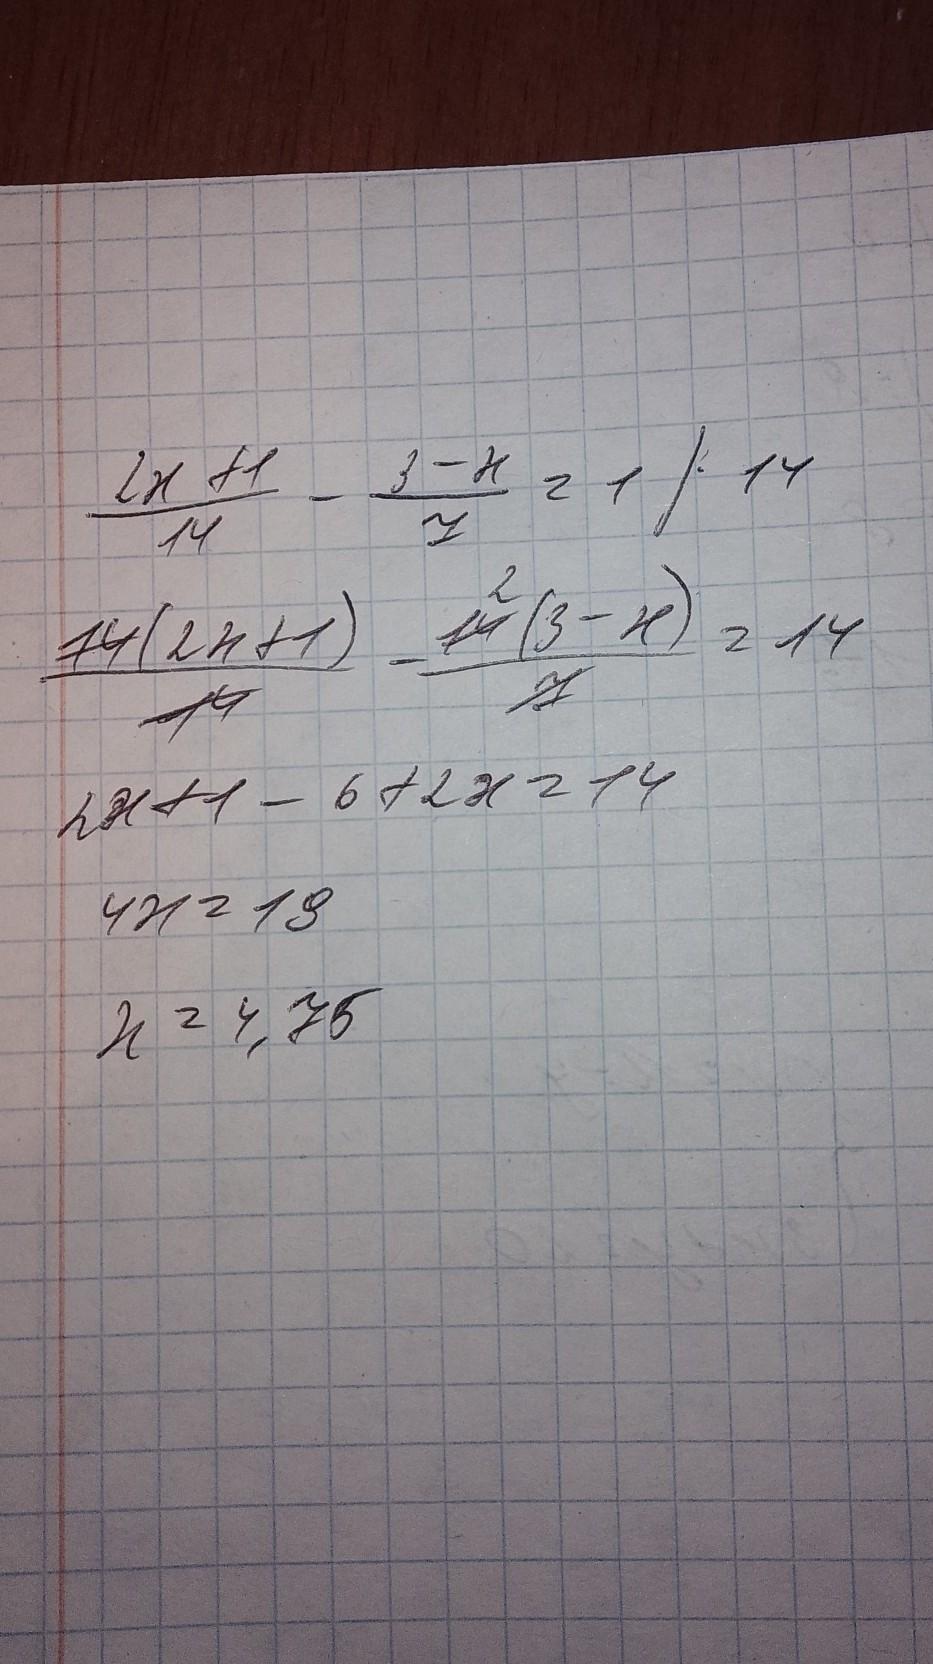 (2x+1)/14 - (3-x)/7 = 1 / · 14
14(2x+1)/14 - 14²(3-x)/7 = 14
2x+1-6+2x=14
4x=19
x=4,75